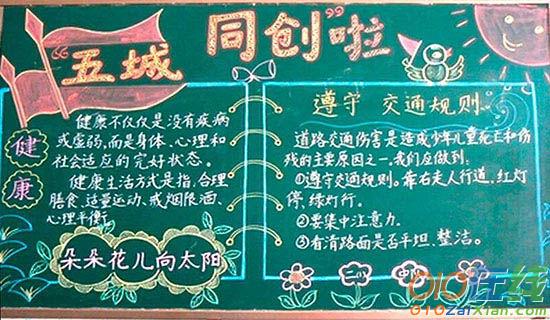 “五城同创”啦
健康
健康不仅仅是没有疾病
或虚弱,而是身体、心理和
社会适应的完好状态。
健康生活方式是指,合理
膳食、适量运动、戒烟限酒、
心理平衡
朵朵花儿向太阳
遵守 交通规则
道路交通伤害是造成少年儿童死亡和伤
残的主要原因之一,我们应做到:
①遵守交通规则。靠右走人行道,红灯
停,绿灯行。
②要集中注意力。
③看清路面是否平坦、整洁。
二(1) 中队
010在线
010zaixian.com